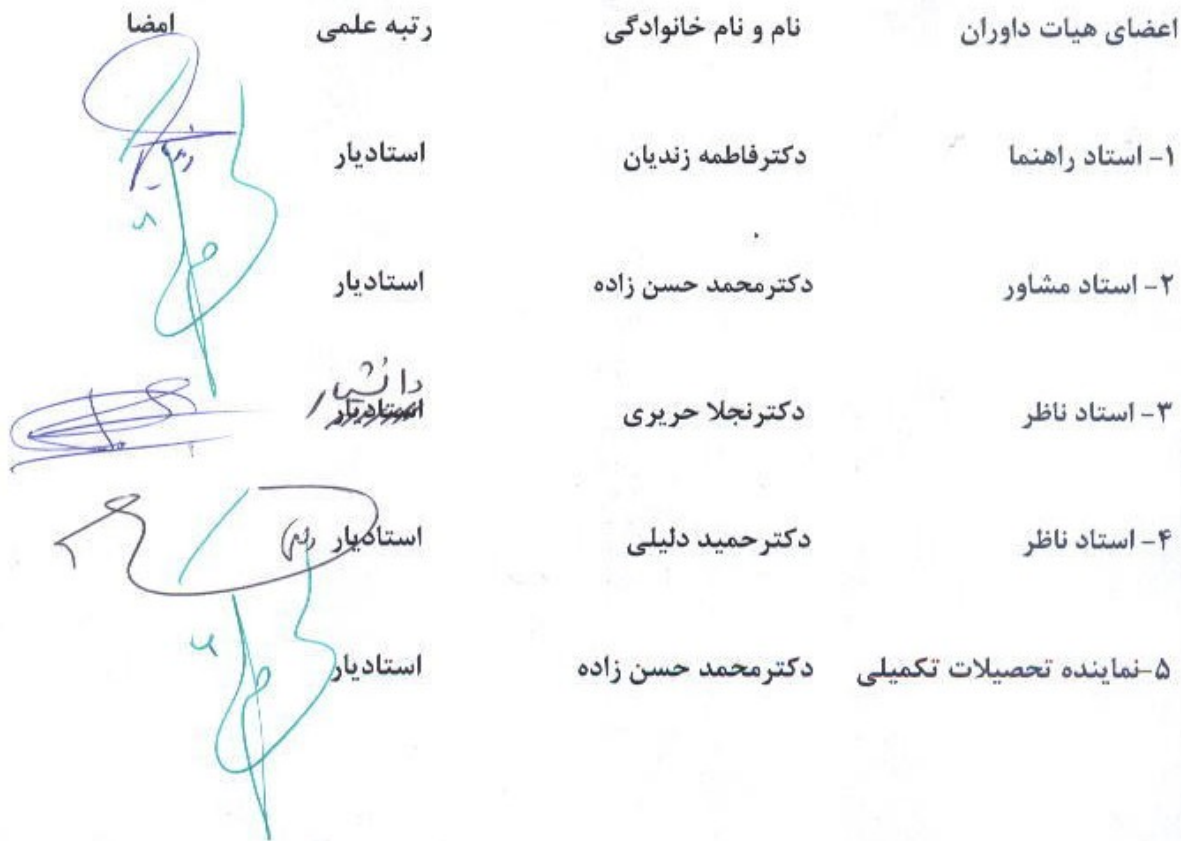 اعضای هیات داوران نام و نام خانوادگی رتبه علمی امضا
۱- استاد راهنما دکترفاطمه زندیان استادیار
۲- استاد مشاور دکترمحمد حسن زاده استادیار
دانشیار
۳- استاد ناظر دکترنجلا حریری استادیار
۴- استاد ناظر دکترحمید دلیلی استادیار
۵-نماینده تحصیلات تکمیلی دکترمحمد حسن زاده استادیار